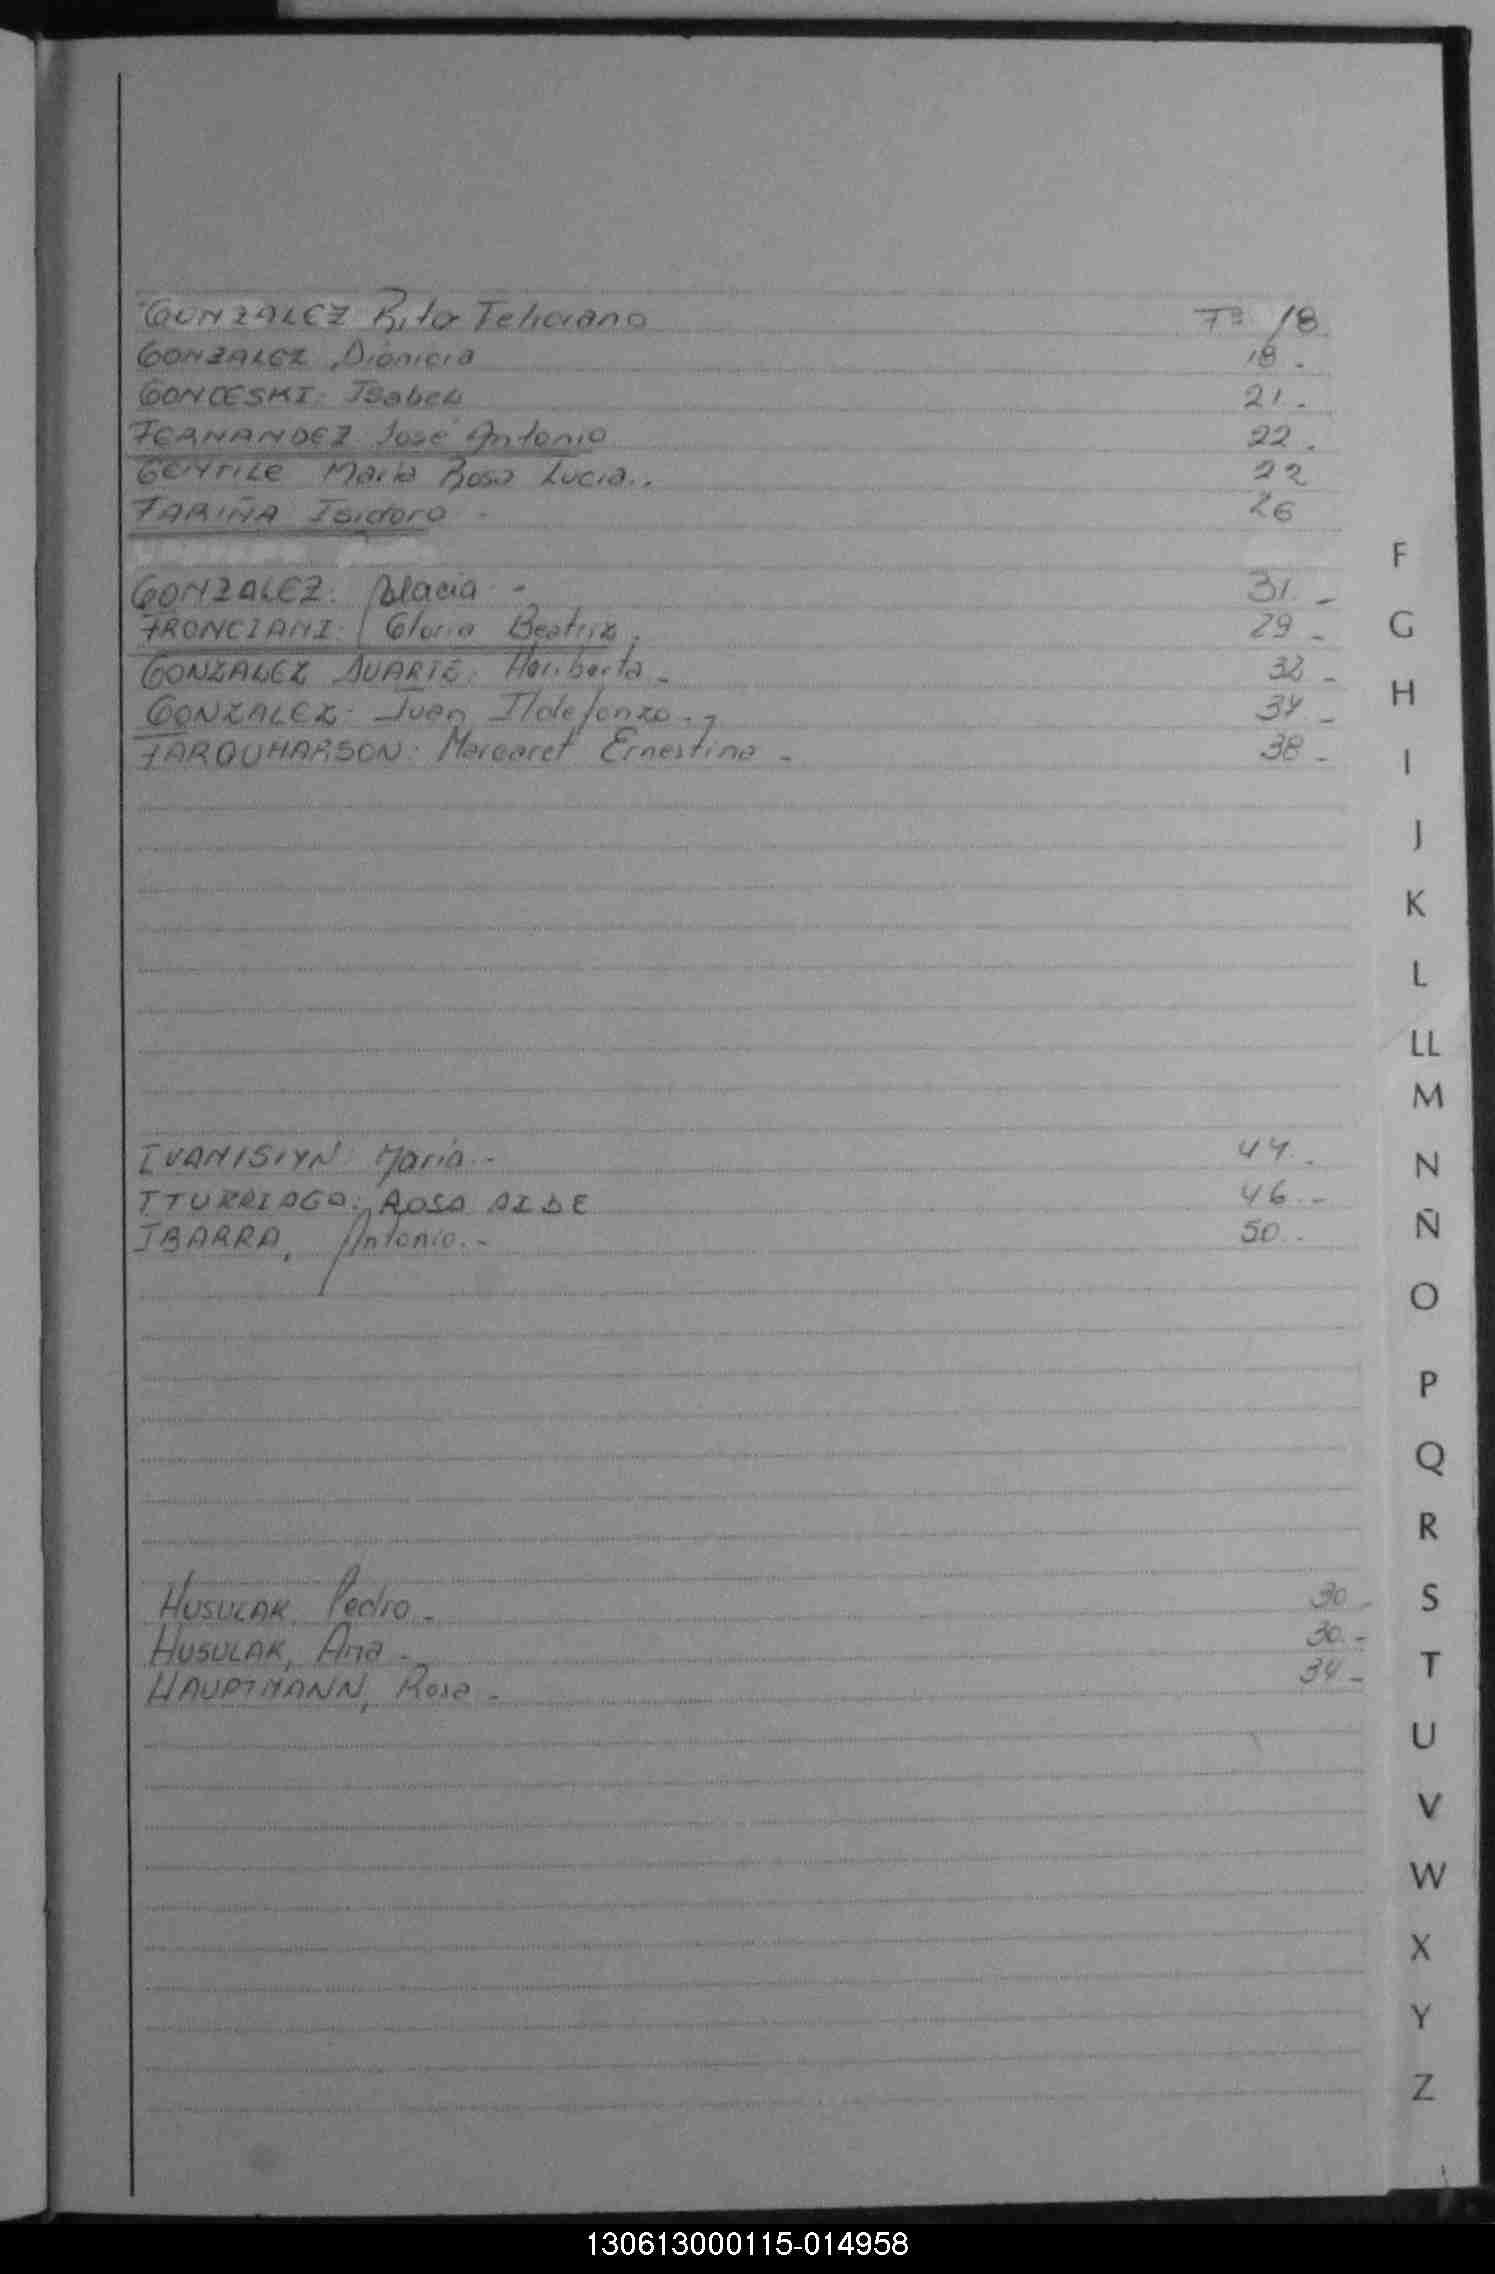 GONZALEZ Rita Feliciana Fº 18
GONZALEZ Dionicia 18.
GONCESKI: Isabel 21.-
FERNANDEZ José Antonio 22.
GENTILE María Rosa Lucia.. 22
FARIÑA Isidoro - 26
GONZALEZ: 31.-
FRONCIANI: Gloria Beatriz. 29-
GONZALEZ DUARTE: Heriberta- 32-
GONZALEZ: Juan Ildefonzo.- 34-
FARQUHARSON: Margaret Ernestina - 38-
IVANISIYN: María.- 44.-
ITURRIAGA: ROSA AIDE 46.-
IBARRA, Antonio.- 50.-
HUSULAK, Pedro- 30-
HUSULAK, Ana- 30.-
HAUPTMANN, Rosa- 34-
F
G
H
I
J
K
L
LL
M
N
Ñ
O
P
Q
R
S
T
U
V
W
X
Y
Z
130613000115-014958